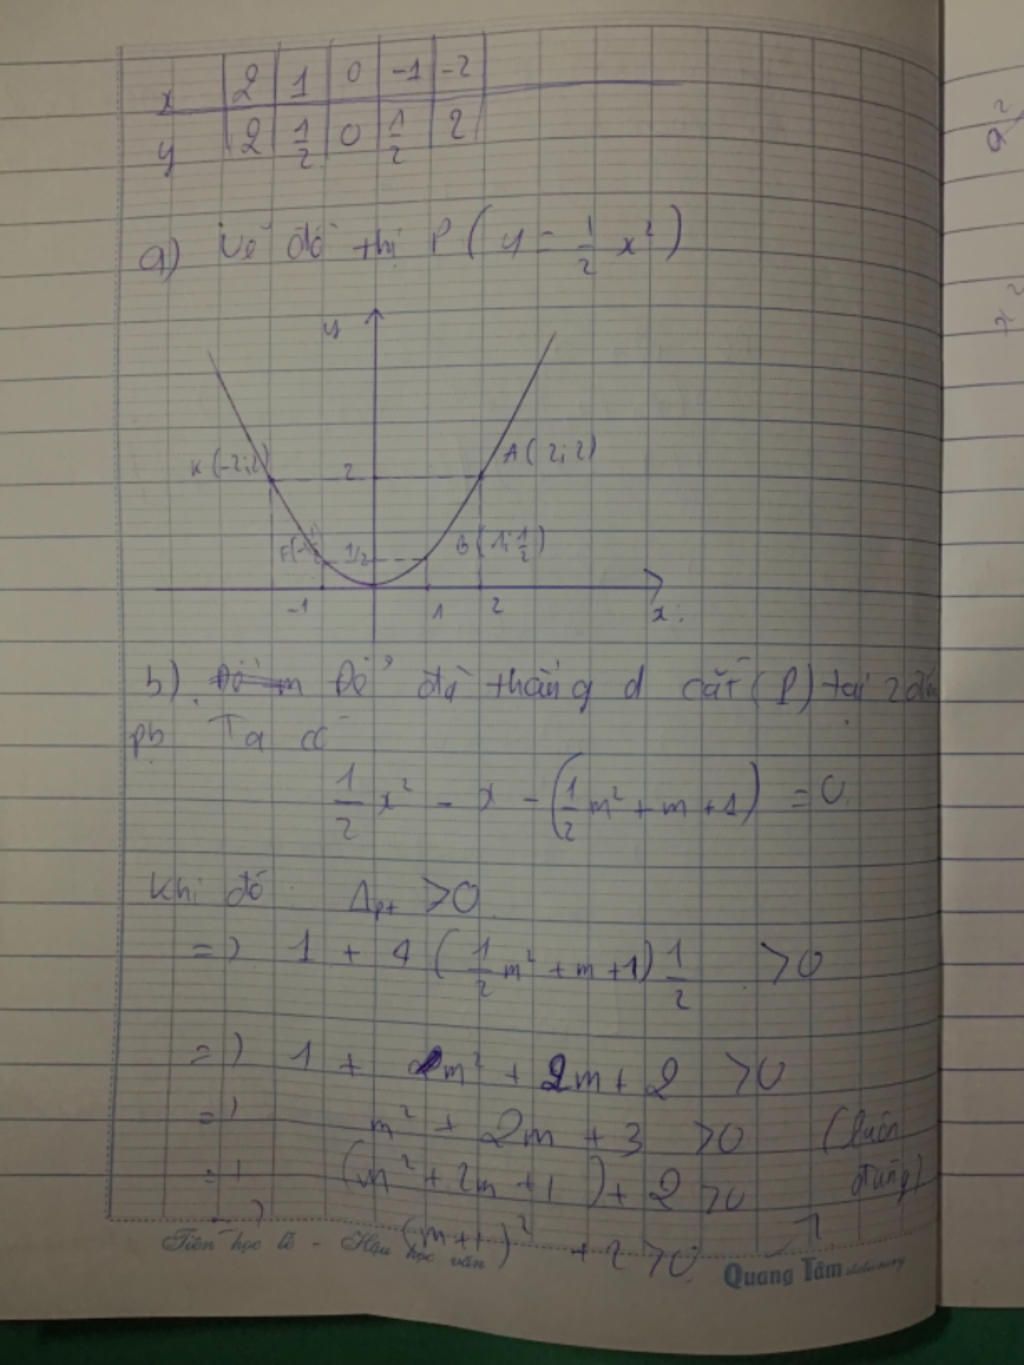 x 2 1 0 -1 -2
y 2 1/2 0 1/2 2
a) Vẽ đồ thị P ( y = 1/2 x² )
y
K (-2; 2) 2 A ( 2; 2)
1/2 B ( 1; 1/2 )
-1 1 2 x
b). Để đg thẳng d cắt (P) tại 2 điểm
pb Ta có
1/2 x² - x - (1/2 m² + m + 1) = 0
Khi đó Δpt > 0
=> 1 + 4 ( 1/2 m² + m + 1) 1/2 > 0
=> 1 + m² + 2m + 2 > 0
=> m² + 2m + 3 > 0 (luôn
=> (m² + 2m + 1 ) + 2 > 0 đúng)
=> (m+1)² + 2 > 0
Tiên học lễ - Hậu học văn
Quang Tâm stationery
a²